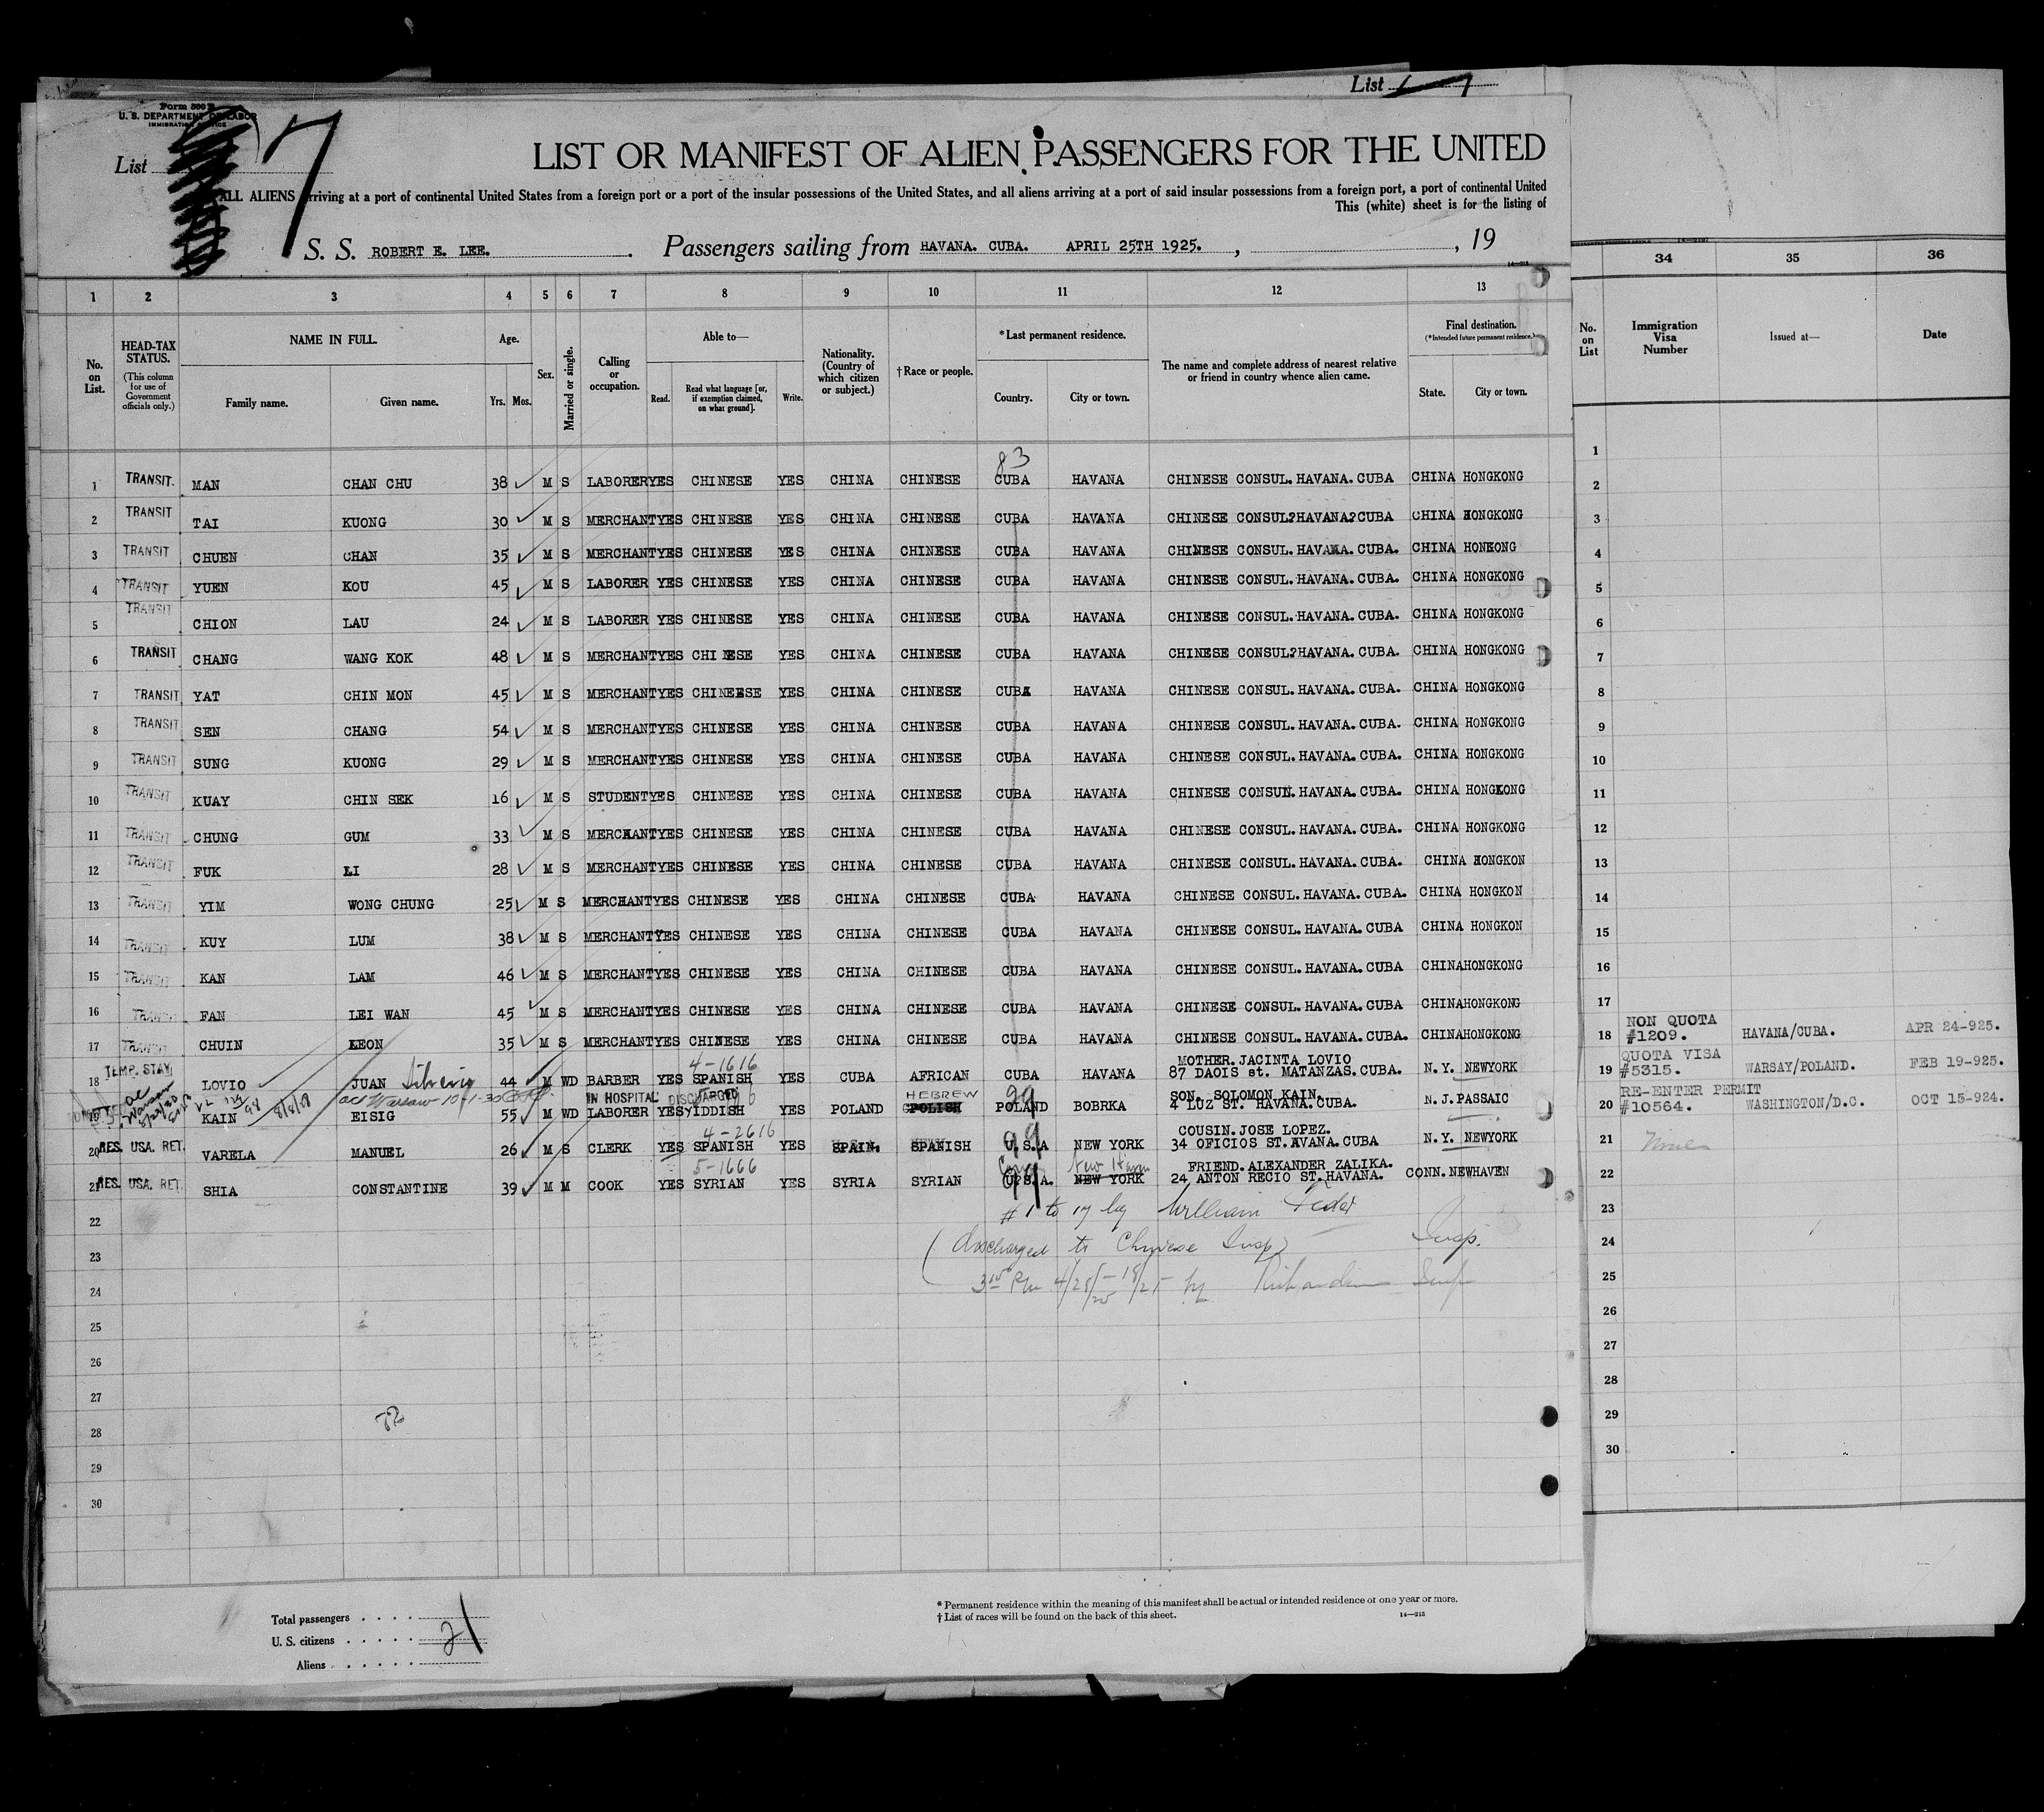 List 7
Form 500 B
U. S. DEPARTMENT OF LABOR
IMMIGRATION SERVICE
List 7
LIST OR MANIFEST OF ALIEN PASSENGERS FOR THE UNITED
ALL ALIENS arriving at a port of continental United States from a foreign port or a port of the insular possessions of the United States, and all aliens arriving at a port of said insular possessions from a foreign port, a port of continental United
This (white) sheet is for the listing of
S. S. ROBERT E. LEE. Passengers sailing from HAVANA. CUBA. APRIL 25TH 1925. , , 19
14—213
1 2 3 4 5 6 7 8 9 10 11 12 13 34 35 36
No. on List.
HEAD-TAX STATUS.
(This column for use of Government officials only.)
NAME IN FULL.
Family name. Given name.
Age.
Yrs. Mos.
Sex.
Married or single.
Calling or occupation.
Able to—
Read. Read what language [or, if exemption claimed, on what ground]. Write.
Nationality. (Country of which citizen or subject.)
† Race or people.
* Last permanent residence.
Country. City or town.
The name and complete address of nearest relative or friend in country whence alien came.
Final destination.
(* Intended future permanent residence.)
State. City or town.
No. on List
Immigration Visa Number
Issued at—
Date
83
1 TRANSIT. MAN CHAN CHU 38 M S LABORER YES CHINESE YES CHINA CHINESE CUBA HAVANA CHINESE CONSUL. HAVANA. CUBA CHINA HONGKONG
2 TRANSIT TAI KUONG 30 M S MERCHANT YES CHINESE YES CHINA CHINESE CUBA HAVANA CHINESE CONSUL?HAVANA?CUBA CHINA HONGKONG
3 TRANSIT CHUEN CHAN 35 M S MERCHANT YES CHINESE YES CHINA CHINESE CUBA HAVANA CHINESE CONSUL. HAVANA. CUBA. CHINA HONKONG
4 TRANSIT YUEN KOU 45 M S LABORER YES CHINESE YES CHINA CHINESE CUBA HAVANA CHINESE CONSUL. HAVANA. CUBA. CHINA HONGKONG
5 TRANSIT CHION LAU 24 M S LABORER YES CHINESE YES CHINA CHINESE CUBA HAVANA CHINESE CONSUL. HAVANA. CUBA. CHINA HONGKONG
6 TRANSIT CHANG WANG KOK 48 M S MERCHANT YES CHI ESE YES CHINA CHINESE CUBA HAVANA CHINESE CONSUL?HAVANA. CUBA. CHINA HONGKONG
7 TRANSIT YAT CHIN MON 45 M S MERCHANT YES CHINEESE YES CHINA CHINESE CUBA HAVANA CHINESE CONSUL. HAVANA. CUBA. CHINA HONGKONG
8 TRANSIT SEN CHANG 54 M S MERCHANT YES CHINESE YES CHINA CHINESE CUBA HAVANA CHINESE CONSUL. HAVANA. CUBA. CHINA HONGKONG
9 TRANSIT SUNG KUONG 29 M S MERCHANT YES CHINESE YES CHINA CHINESE CUBA HAVANA CHINESE CONSUL. HAVANA. CUBA. CHINA HONGKONG
10 TRANSIT KUAY CHIN SEK 16 M S STUDENT YES CHINESE YES CHINA CHINESE CUBA HAVANA CHINESE CONSUL. HAVANA. CUBA. CHINA HONGKONG
11 TRANSIT CHUNG GUM 33 M S MERCHANT YES CHINESE YES CHINA CHINESE CUBA HAVANA CHINESE CONSUL. HAVANA. CUBA. CHINA HONGKONG
12 TRANSIT FUK LI 28 M S MERCHANT YES CHINESE YES CHINA CHINESE CUBA HAVANA CHINESE CONSUL. HAVANA. CUBA. CHINA HONGKON
13 TRANSIT YIM WONG CHUNG 25 M S MERCHANT YES CHINESE YES CHINA CHINESE CUBA HAVANA CHINESE CONSUL. HAVANA. CUBA. CHINA HONGKON
14 TRANSIT KUY LUM 38 M S MERCHANT YES CHINESE YES CHINA CHINESE CUBA HAVANA CHINESE CONSUL. HAVANA. CUBA CHINA HONGKON
15 TRANSIT KAN LAM 46 M S MERCHANT YES CHINESE YES CHINA CHINESE CUBA HAVANA CHINESE CONSUL. HAVANA. CUBA CHINA HONGKONG
16 TRANSIT FAN LEI WAN 45 M S MERCHANT YES CHINESE YES CHINA CHINESE CUBA HAVANA CHINESE CONSUL. HAVANA. CUBA CHINA HONGKONG
17 TRANSIT CHUIN LEON 35 M S MERCHANT YES CHINESE YES CHINA CHINESE CUBA HAVANA CHINESE CONSUL. HAVANA. CUBA. CHINA HONGKONG
4-1616
18 TEMP. STAY LOVIO JUAN Silverio 44 M WD BARBER YES SPANISH YES CUBA AFRICAN CUBA HAVANA MOTHER. JACINTA LOVIO 87 DAOIS st. MATANZAS. CUBA. N.Y. NEWYORK
Warsaw 10-1-30
IN HOSPITAL DISCHARGED
19 KAIN EISIG 55 M WD LABORER YES YIDDISH YES POLAND HEBREW POLISH 99 POLAND BOBRKA SON. SOLOMON KAIN. 4 LUZ ST. HAVANA. CUBA. N.J. PASSAIC
4-2616
20 RES. USA. RET. VARELA MANUEL 26 M S CLERK YES SPANISH YES SPAIN. SPANISH 99 U.S.A NEW YORK COUSIN. JOSE LOPEZ. 34 OFICIOS ST. AVANA. CUBA N.Y. NEWYORK
5-1666
21 RES. USA. RET. SHIA CONSTANTINE 39 M M COOK YES SYRIAN YES SYRIA SYRIAN 99 Conn U.S.A. New Haven NEW YORK FRIEND. ALEXANDER ZALIKA. 24 ANTON RECIO ST. HAVANA. CONN. NEWHAVEN
22
# 1 to 17 by William Feder Insp.
23
(discharged to Chinese Insp)
24
3 15 P.M. 4/28/25 by
25
26
27
28
29
30
1
2
3
4
5
6
7
8
9
10
11
12
13
14
15
16
17
18 NON QUOTA #1209. HAVANA/CUBA. APR 24-925.
19 QUOTA VISA #5315. WARSAY/POLAND. FEB 19-925.
20 RE-ENTER PERMIT #10564. WASHINGTON/D.C. OCT 15-924.
21 None
22
23
24
25
26
27
28
29
30
Total passengers . . . .
U. S. citizens . . . . . 21
Aliens . . . . . .
* Permanent residence within the meaning of this manifest shall be actual or intended residence of one year or more.
† List of races will be found on the back of this sheet.
14—213